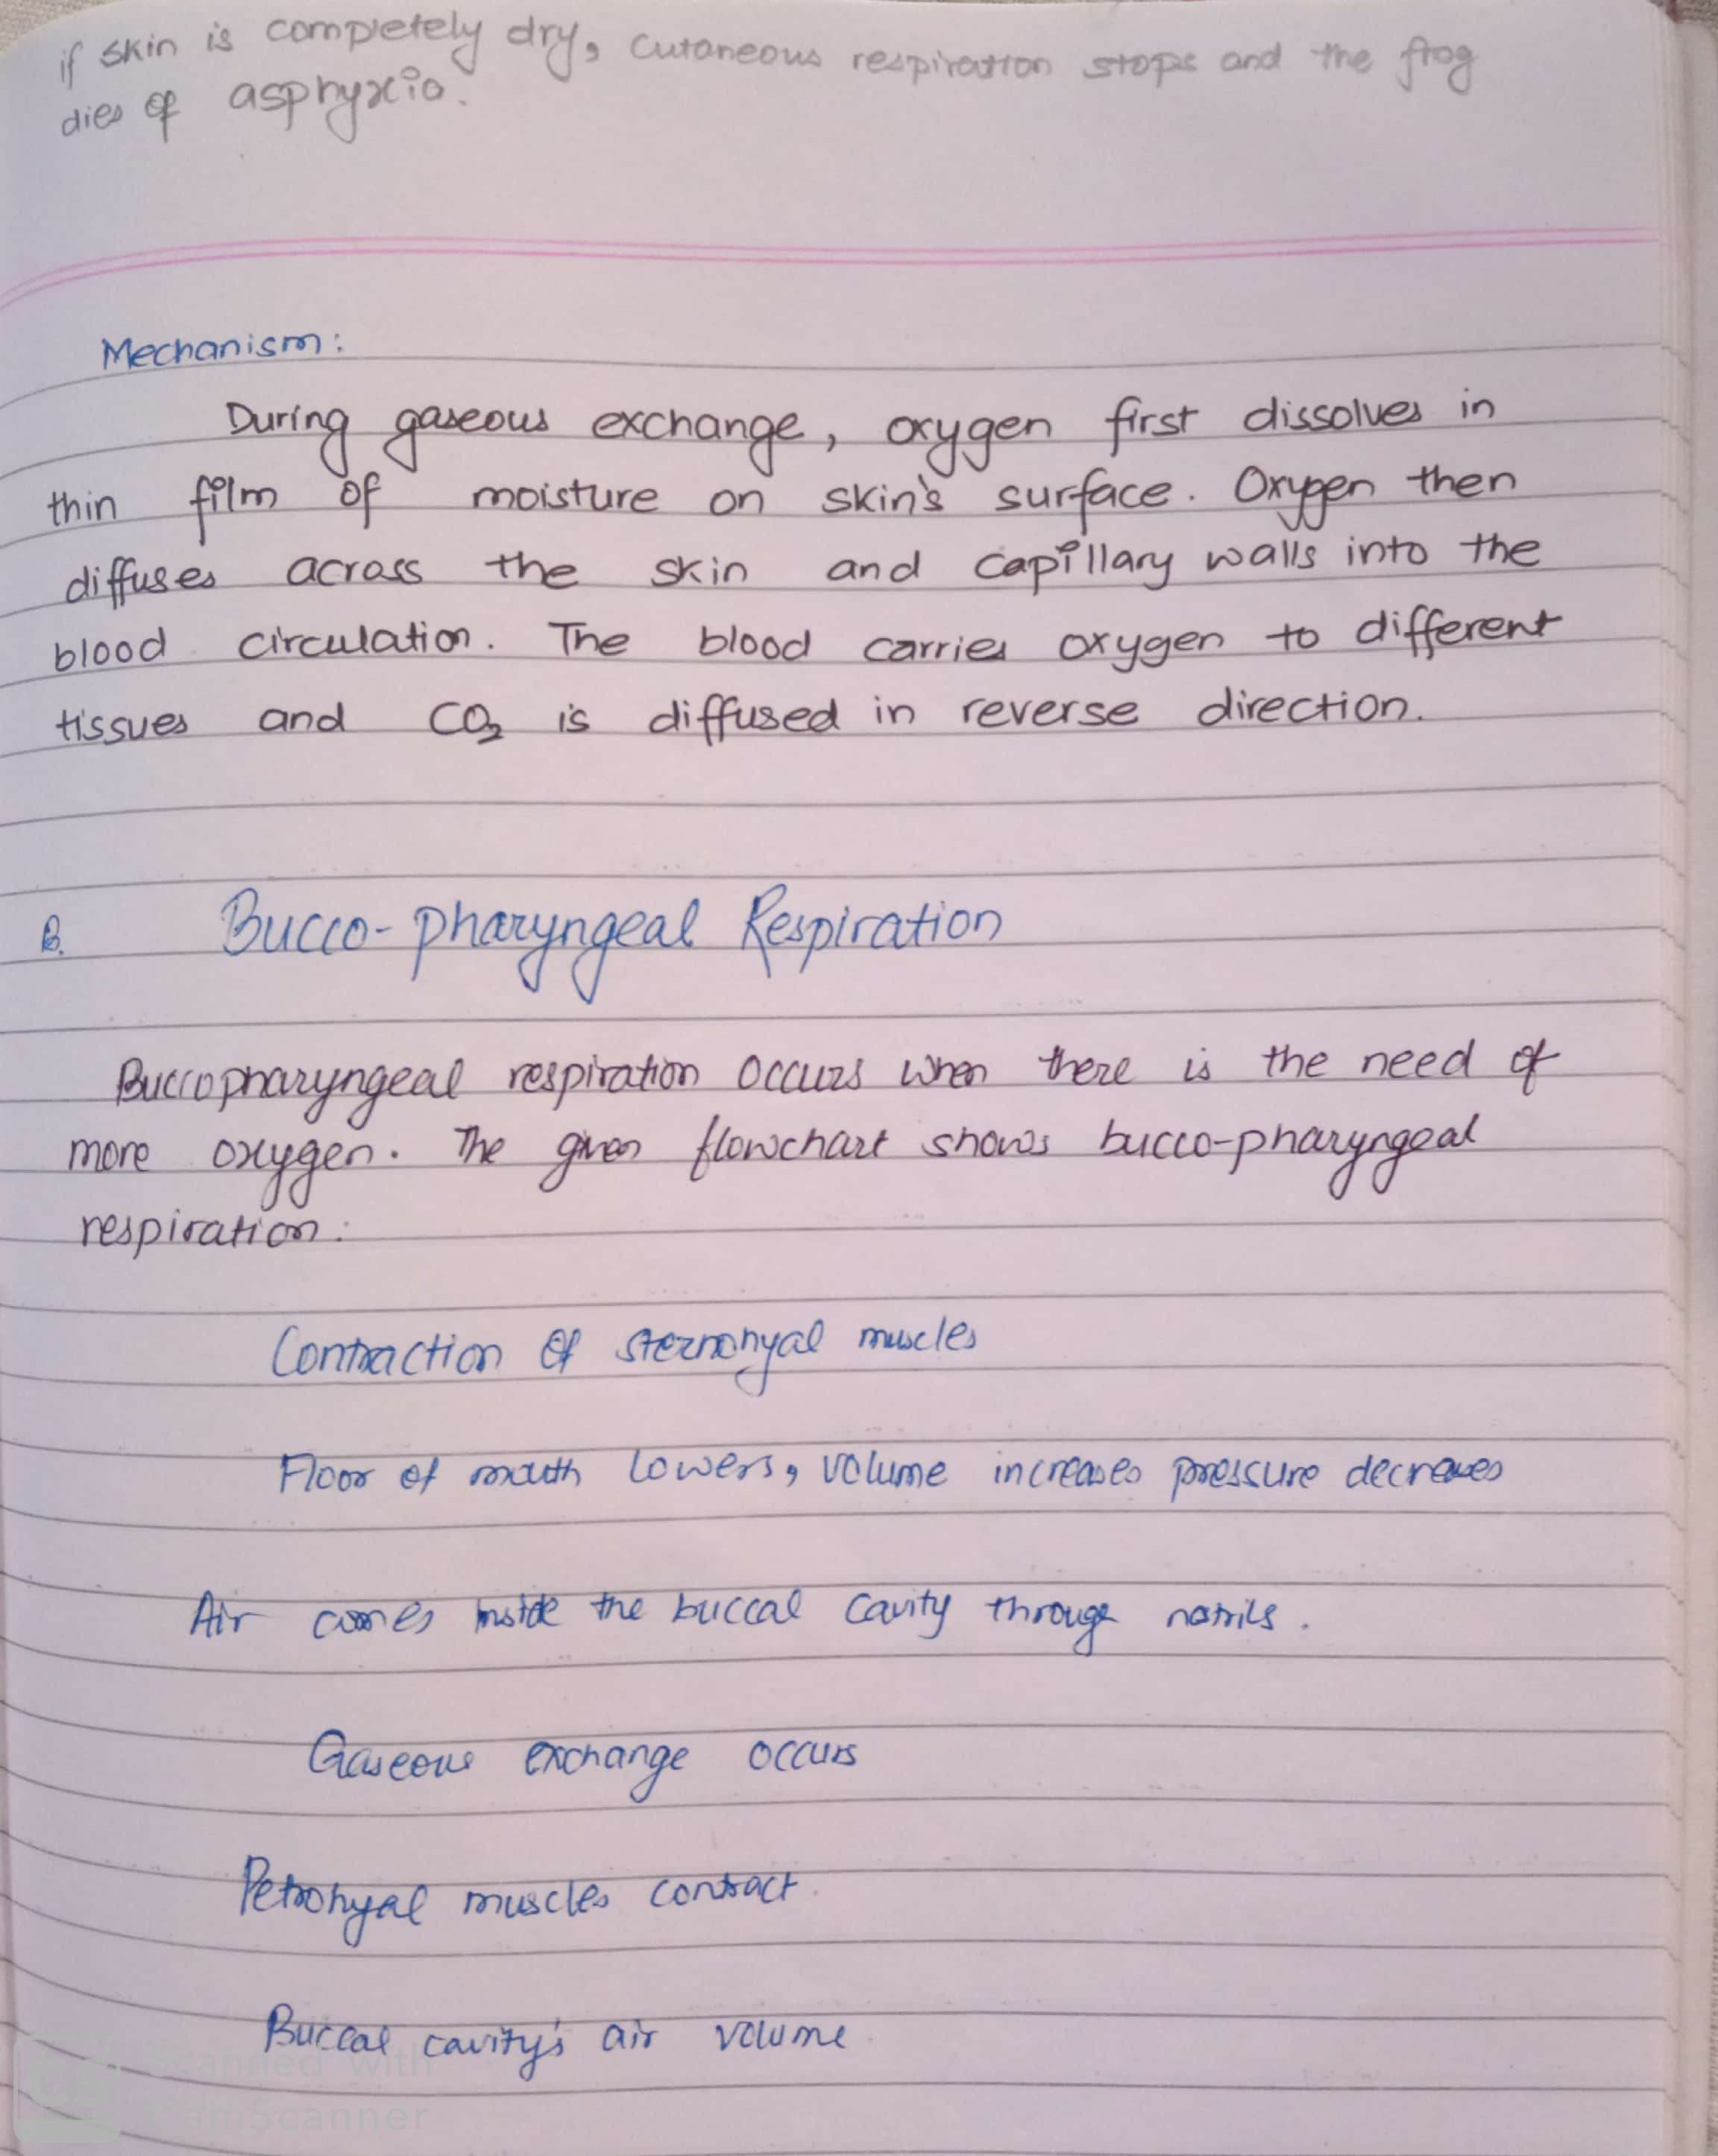 if skin is completely dry, cutaneous respiration stops and the frog
dies of asphyxia.
Mechanism:
During gaseous exchange, oxygen first dissolves in
thin film of moisture on skin's surface. Oxygen then
diffuses across the skin and capillary walls into the
blood circulation. The blood carries oxygen to different
tissues and CO₂ is diffused in reverse direction.
B. Bucco-pharyngeal Respiration
Buccopharyngeal respiration occurs when there is the need of
more oxygen. The given flowchart shows bucco-pharyngeal
respiration:
Contraction of sternohyal muscles
Floor of mouth lowers, volume increases pressure decreases
Air comes inside the buccal cavity through nostrils.
Gaseous exchange occurs
Petrohyal muscles contract.
Buccal cavity's air volume
Scanned with
CamScanner